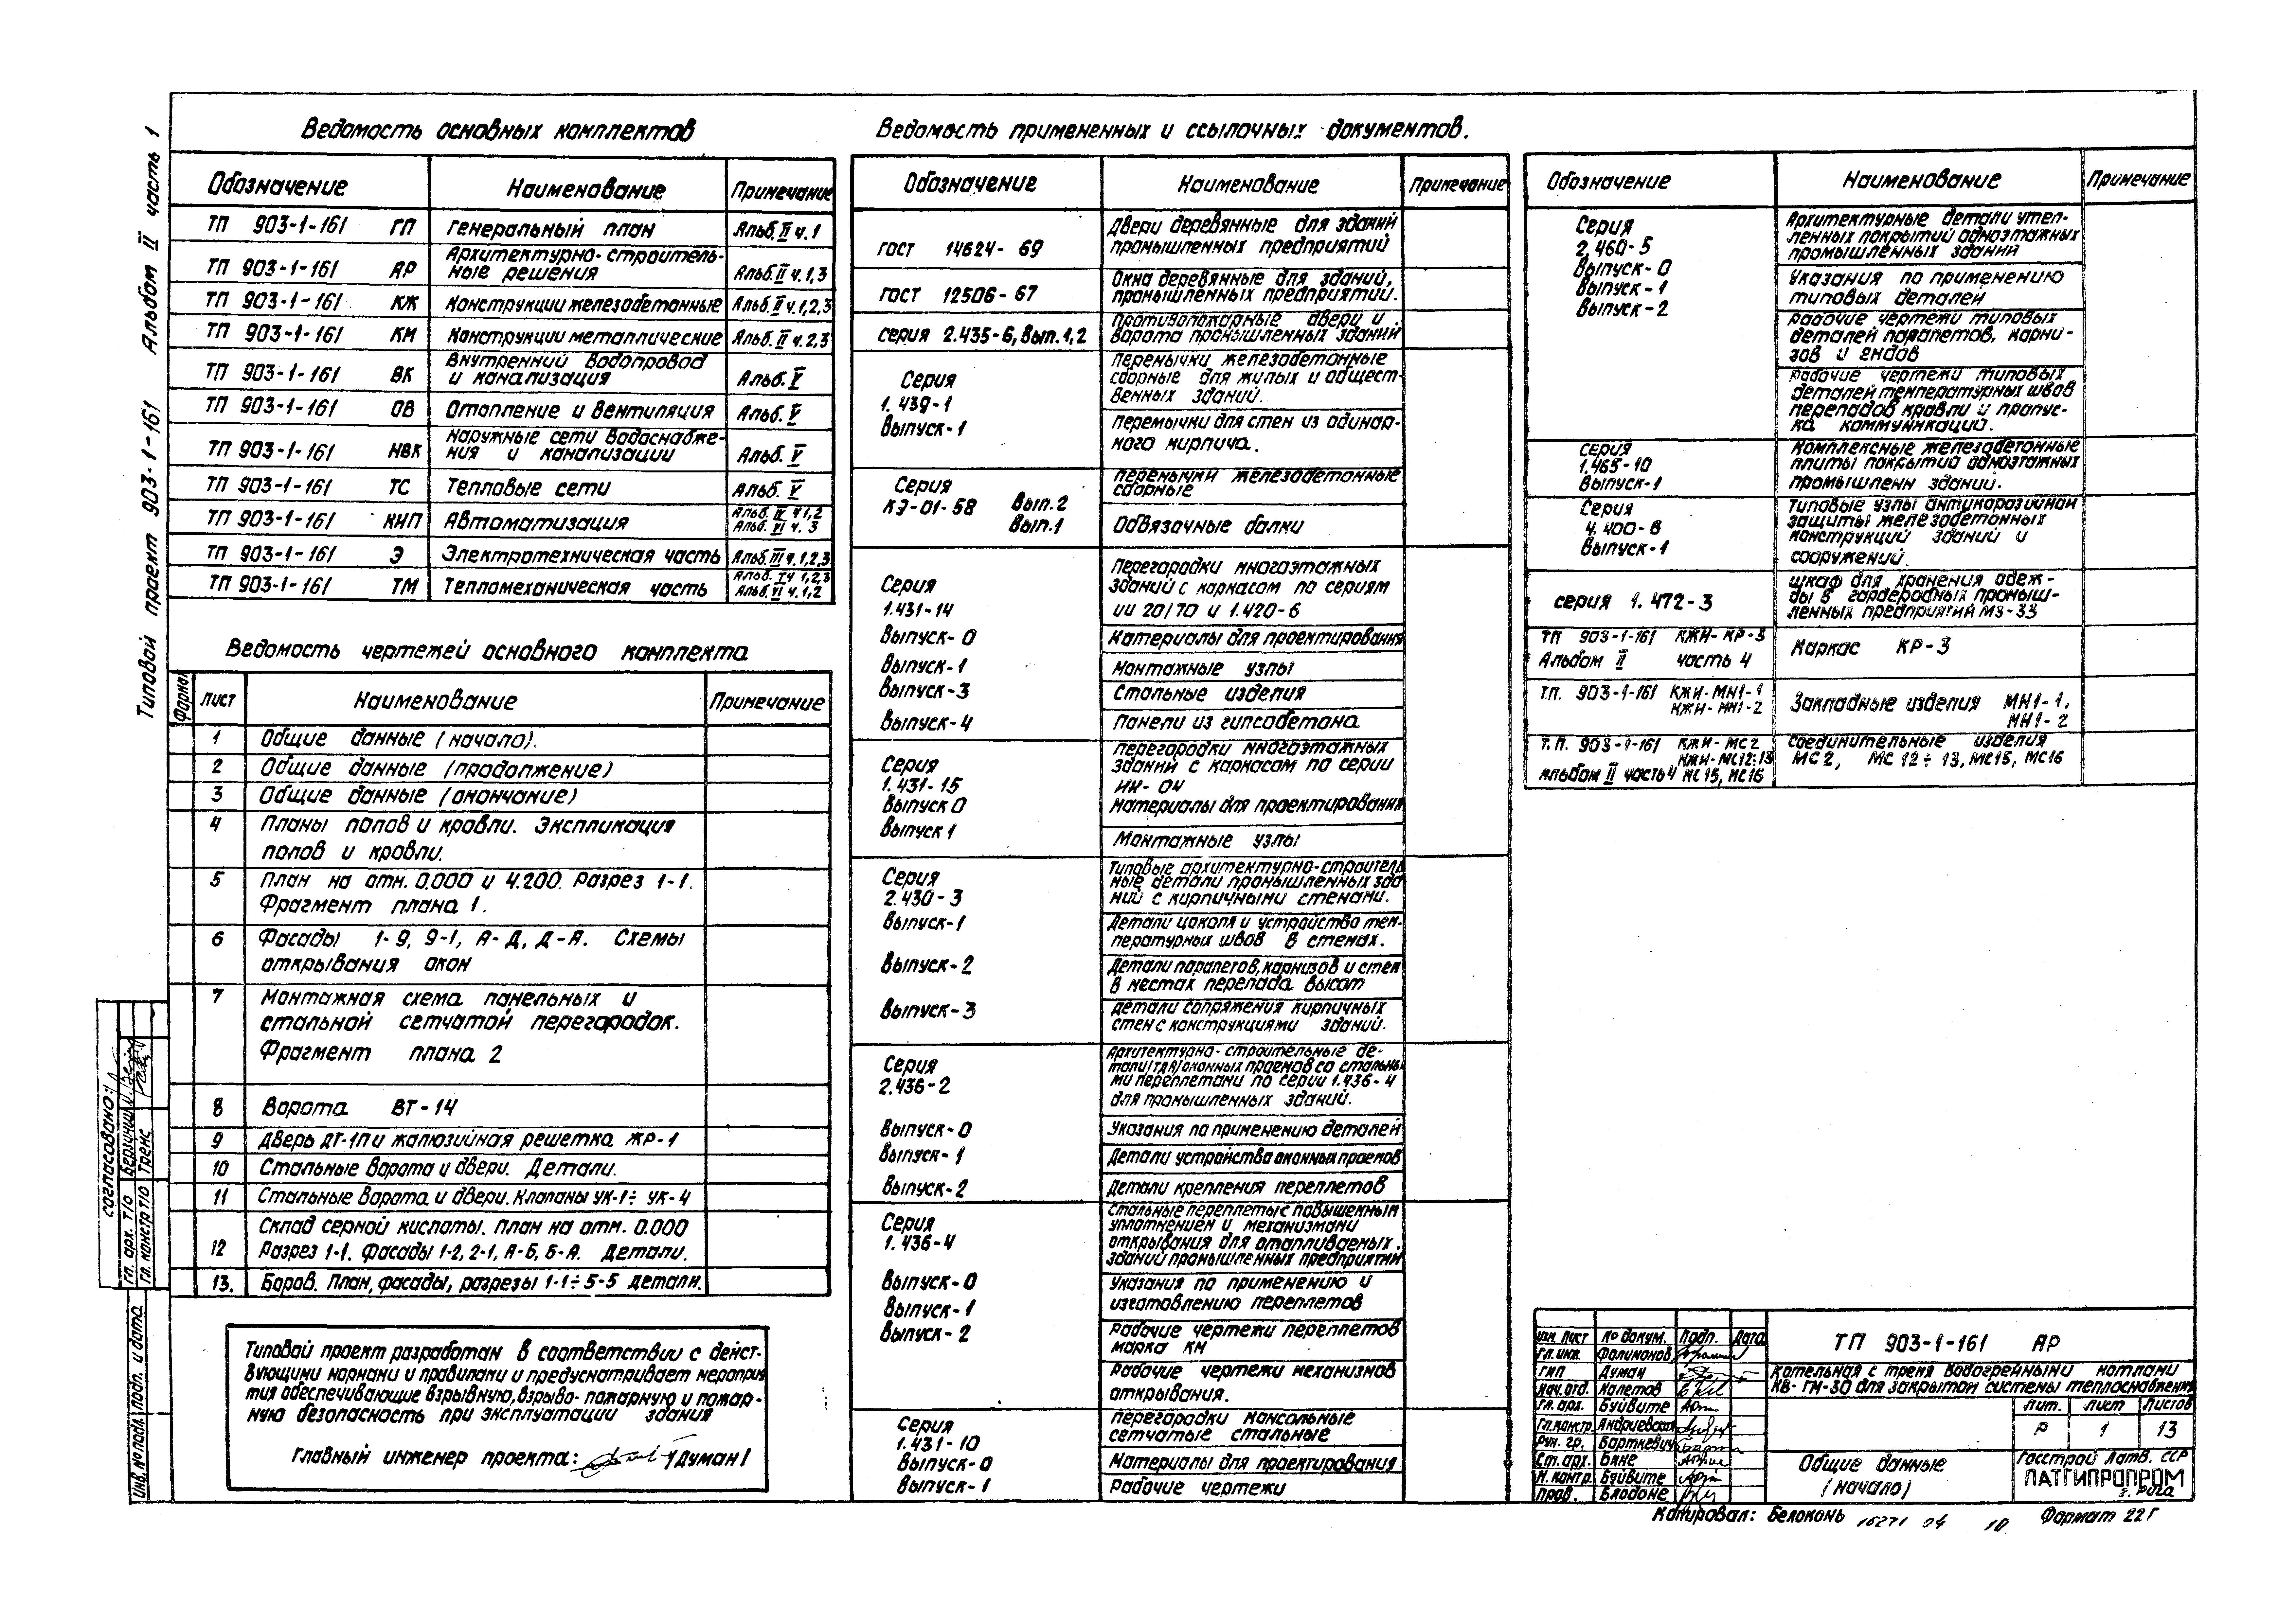 Типовой проект 903-1-161 Альбом II часть 1
Ведомость основных комплектов
Обозначение Наименование Примечание
ТП 903-1-161 ГП Генеральный план Альб. II ч.1
ТП 903-1-161 АР Архитектурно-строитель-
ные решения Альб. II ч.1,3
ТП 903-1-161 КЖ Конструкции железобетонные Альб. II ч.1,2,3
ТП 903-1-161 КМ Конструкции металлические Альб. II ч.2,3
ТП 903-1-161 ВК Внутренний водопровод
и канализация Альб. V
ТП 903-1-161 ОВ Отопление и вентиляция Альб. V
ТП 903-1-161 НВК Наружные сети водоснабже-
ния и канализации Альб. V
ТП 903-1-161 ТС Тепловые сети Альб. V
ТП 903-1-161 КИП Автоматизация Альб. IV ч 1,2
Альб. VI ч. 3
ТП 903-1-161 Э Электротехническая часть Альб. III ч.1,2,3
ТП 903-1-161 ТМ Тепломеханическая часть Альб. I ч 1,2,3
Альб. VI ч.1,2
Ведомость чертежей основного комплекта
Формат Лист Наименование Примечание
1 Общие данные (начало).
2 Общие данные (продолжение)
3 Общие данные (окончание)
4 Планы полов и кровли. Экспликация
полов и кровли.
5 План на отм. 0.000 и 4.200. Разрез 1-1.
Фрагмент плана 1.
6 Фасады 1-9, 9-1, А-Д, Д-А. Схемы
открывания окон
7 Монтажная схема панельных и
стальной сетчатой перегородок.
Фрагмент плана 2
8 Ворота ВТ-14
9 Дверь ДТ-1П и жалюзийная решетка ЖР-1
10 Стальные ворота и двери. Детали.
11 Стальные ворота и двери. Клапаны УК-1÷УК-4
Склад серной кислоты. План на отм. 0.000
12 Разрез 1-1. Фасады 1-2, 2-1, А-Б, Б-А. Детали.
13. Боров. План, фасады, разрезы 1-1÷5-5 детали.
Типовой проект разработан в соответствии с дейст-
вующими нормами и правилами и предусматривает мероприя
тия обеспечивающие взрывную, взрыво-пожарную и пожар-
ную безопасность при эксплуатации здания
Главный инженер проекта: /Думан/
Ведомость примененных и ссылочных документов.
Обозначение Наименование Примечание
ГОСТ 14624-69 Двери деревянные для зданий
промышленных предприятий
ГОСТ 12506-67 Окна деревянные для зданий,
промышленных предприятий.
серия 2.435-6, вып. 1,2 Противопожарные двери и
ворота промышленных зданий
Серия
1. 439-1
Выпуск-1
Перемычки железобетонные
сборные для жилых и общест-
венных зданий.
Перемычки для стен из одинар-
ного кирпича.
Серия
КЭ-01-58 Вып.2
Вып.1
Перемычки железобетонные
сборные
Обвязочные балки
Серия
1.431-14
Перегородки многоэтажных
зданий с каркасом по сериям
ИИ 20/70 и 1.420-6
Выпуск-0 Материалы для проектирования
Выпуск-1 Монтажные узлы
Выпуск-3 Стальные изделия
Выпуск-4 Панели из гипсобетона
Серия
1.431-15
Перегородки многоэтажных
зданий с каркасом по серии
ИИ-04
Выпуск 0 Материалы для проектирования
Выпуск 1 Монтажные узлы
Серия
2.430-3
Типовые архитектурно-строитель
ные детали промышленных зда
ний с кирпичными стенами.
Выпуск-1 Детали цоколя и устройство тем-
пературных швов в стенах.
Выпуск-2 Детали парапетов, карнизов и стен
в местах перепада высот
Выпуск-3 Детали сопряжения кирпичных
стен с конструкциями зданий.
Серия
2.436-2
Архитектурно-строительные де-
тали (ТДА) оконных проемов со стальны
ми переплетами по серии 1.436-4
для промышленных зданий.
Выпуск-0 Указания по применению деталей
Выпуск-1 Детали устройства оконных проемов
Выпуск-2 Детали крепления переплетов
Серия
1. 436-4
Стальные переплеты с повышенным
уплотнением и механизмами
открывания для отапливаемых
зданий промышленных предприятий
Выпуск-0
Выпуск-1
Выпуск-2
Указания по применению и
изготовлению переплетов
Рабочие чертежи переплетов
марка КМ
Рабочие чертежи механизмов
открывания.
Серия
1.431-10
Перегородки консольные
сетчатые стальные
Выпуск-0 Материалы для проектирования
Выпуск-1 Рабочие чертежи
Обозначение Наименование Примечание
Серия
2.460-5
Выпуск-0
Выпуск-1
Выпуск-2
Архитектурные детали утеп-
ленных покрытий одноэтажных
промышленных зданий
Указания по применению
типовых деталей
Рабочие чертежи типовых
деталей парапетов, карни-
зов и ендов
Рабочие чертежи типовых
деталей температурных швов
перепадов кровли и пропус-
ка коммуникаций.
серия
1.465-10
Выпуск-1
Комплексные железобетонные
плиты покрытий одноэтажных
промышленн зданий.
Серия
4.400-6
Выпуск-1
Типовые узлы антикорозийной
защиты железобетонных
конструкций зданий и
сооружений.
серия 1.472-3
Шкаф для хранения одеж-
ды в гардеробных промыш-
ленных предприятий МЗ-33
ТП 903-1-161 КЖИ-КР-3
Альбом II часть 4
Каркас КР-3
Т.П. 903-1-161 КЖИ-МН1-1
КЖИ-МН1-2
Закладные изделия МН1-1,
МН1-2
Т.П. 903-1-161 КЖИ-МС2
КЖИ-МС12÷13
Альбом II часть 4 МС15, МС16
Соединительные изделия
МС2, МС 12÷13, МС15, МС16
согласовано:
Гл. арх. Т/О
Гл. констр Т/О Тренс
Инв. № подл. Подп. и дата
Изм. Лист № докум. Подп. Дата
Гл. инж. Фалимонов
ГИП Думан
Нач. отд. Капетов
Гл. арх. Буйвите
Гл. констр Андриевская
Рук. гр. Барткевич
Ст. арх. Бине
Н. контр. Буйвите
Пров. Блодоне
ТП 903-1-161 АР
Котельная с тремя водогрейными котлами
КВ-ГМ-30 для закрытой системы теплоснабжения
Лит. Лист Листов
Р 1 13
Общие данные
(начало)
Госстрой Латв. ССР
ЛАТГИПРОПРОМ
г. Рига
Копировал: Белоконь 16271 04 10 Формат 22Г